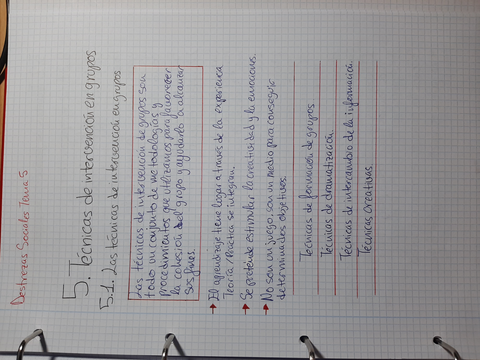 Destrezas Sociales Tema 5
5. Técnicas de intervención en grupos
5.1. Las técnicas de intervención en grupos
Las técnicas de intervención de grupos son
todo un conjunto de metodologías y
procedimientos que utilizamos para favorecer
la cohesión del grupo y ayudarlo a alcanzar
sus fines.
→ El aprendizaje tiene lugar a través de la experiencia
Teoría/Práctica se integran.
→ Se pretende estimular la creatividad y la emociones.
→ No son un juego, son un medio para conseguir
determinados objetivos.
Técnicas de formación de grupos
Técnicas de dramatización.
Técnicas de intercambio de la información.
Técnicas creativas